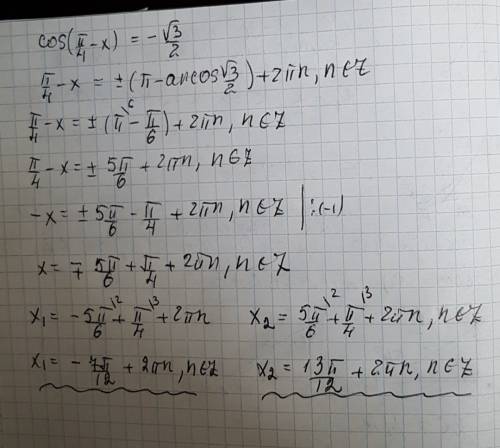 cos(π/4 - x) = -√3/2
π/4 - x = ±(π - arccos √3/2) + 2πn, n∈Z
π/4 - x = ±(π\⁶ - π/6) + 2πn, n∈Z
π/4 - x = ± 5π/6 + 2πn, n∈Z
-x = ± 5π/6 - π/4 + 2πn, n∈Z | :(-1)
x = ∓ 5π/6 + π/4 + 2πn, n∈Z
x₁ = - 5π/6\² + π/4\³ + 2πn x₂ = 5π/6\² + π/4\³ + 2πn, n∈Z
x₁ = - 7π/12 + 2πn, n∈Z x₂ = 13π/12 + 2πn, n∈Z